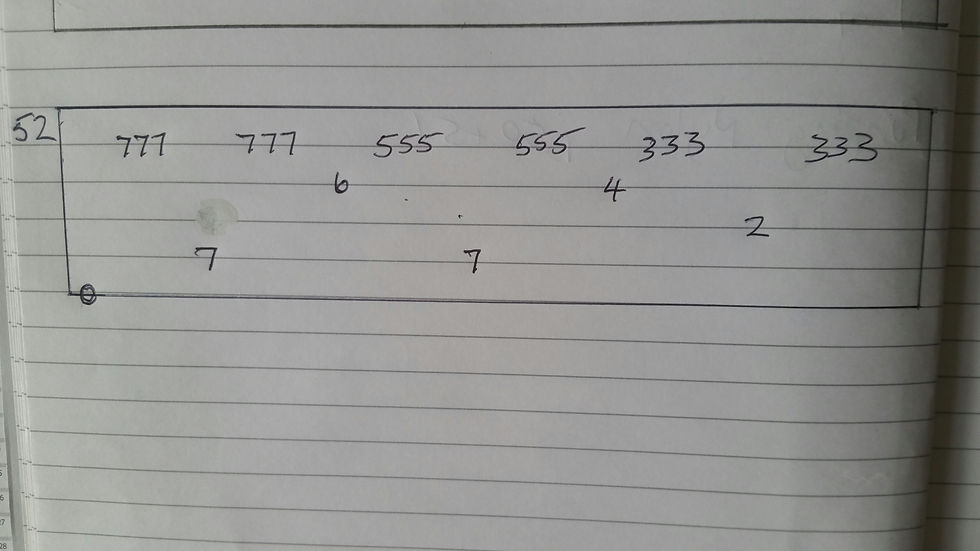 52 777 777 555 555 333 333
6 4
2
7 7
0